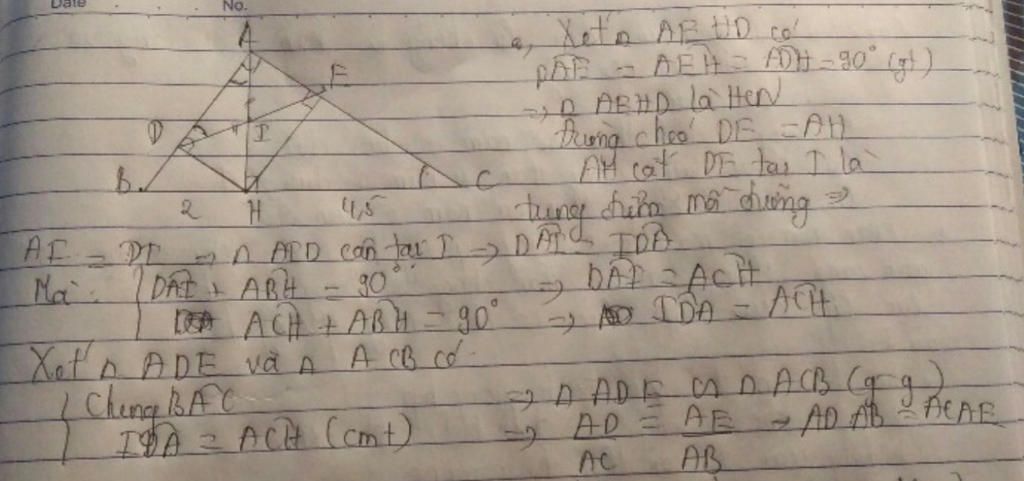 Date No.
A
E
D
I
B
H
C
2
4,5
a, Xét △ AEHD có
DAE = AEH = ADH = 90° (gt)
=> △ AEHD là HCN
Đường chéo DE = AH
AH cắt DE tại I là
trung điểm mỗi đường =>
AI = DI => △ AID cân tại I => DAI = IDA
Mà: DAI + ABH = 90° => DAI = ACH
ACH + ABH = 90° => IDA = ACH
Xét △ ADE và △ ACB có
Chung BAC => △ ADE ∽ △ ACB (g-g)
IDA = ACH (cmt) => AD/AC = AE/AB → AD AB = AC AE